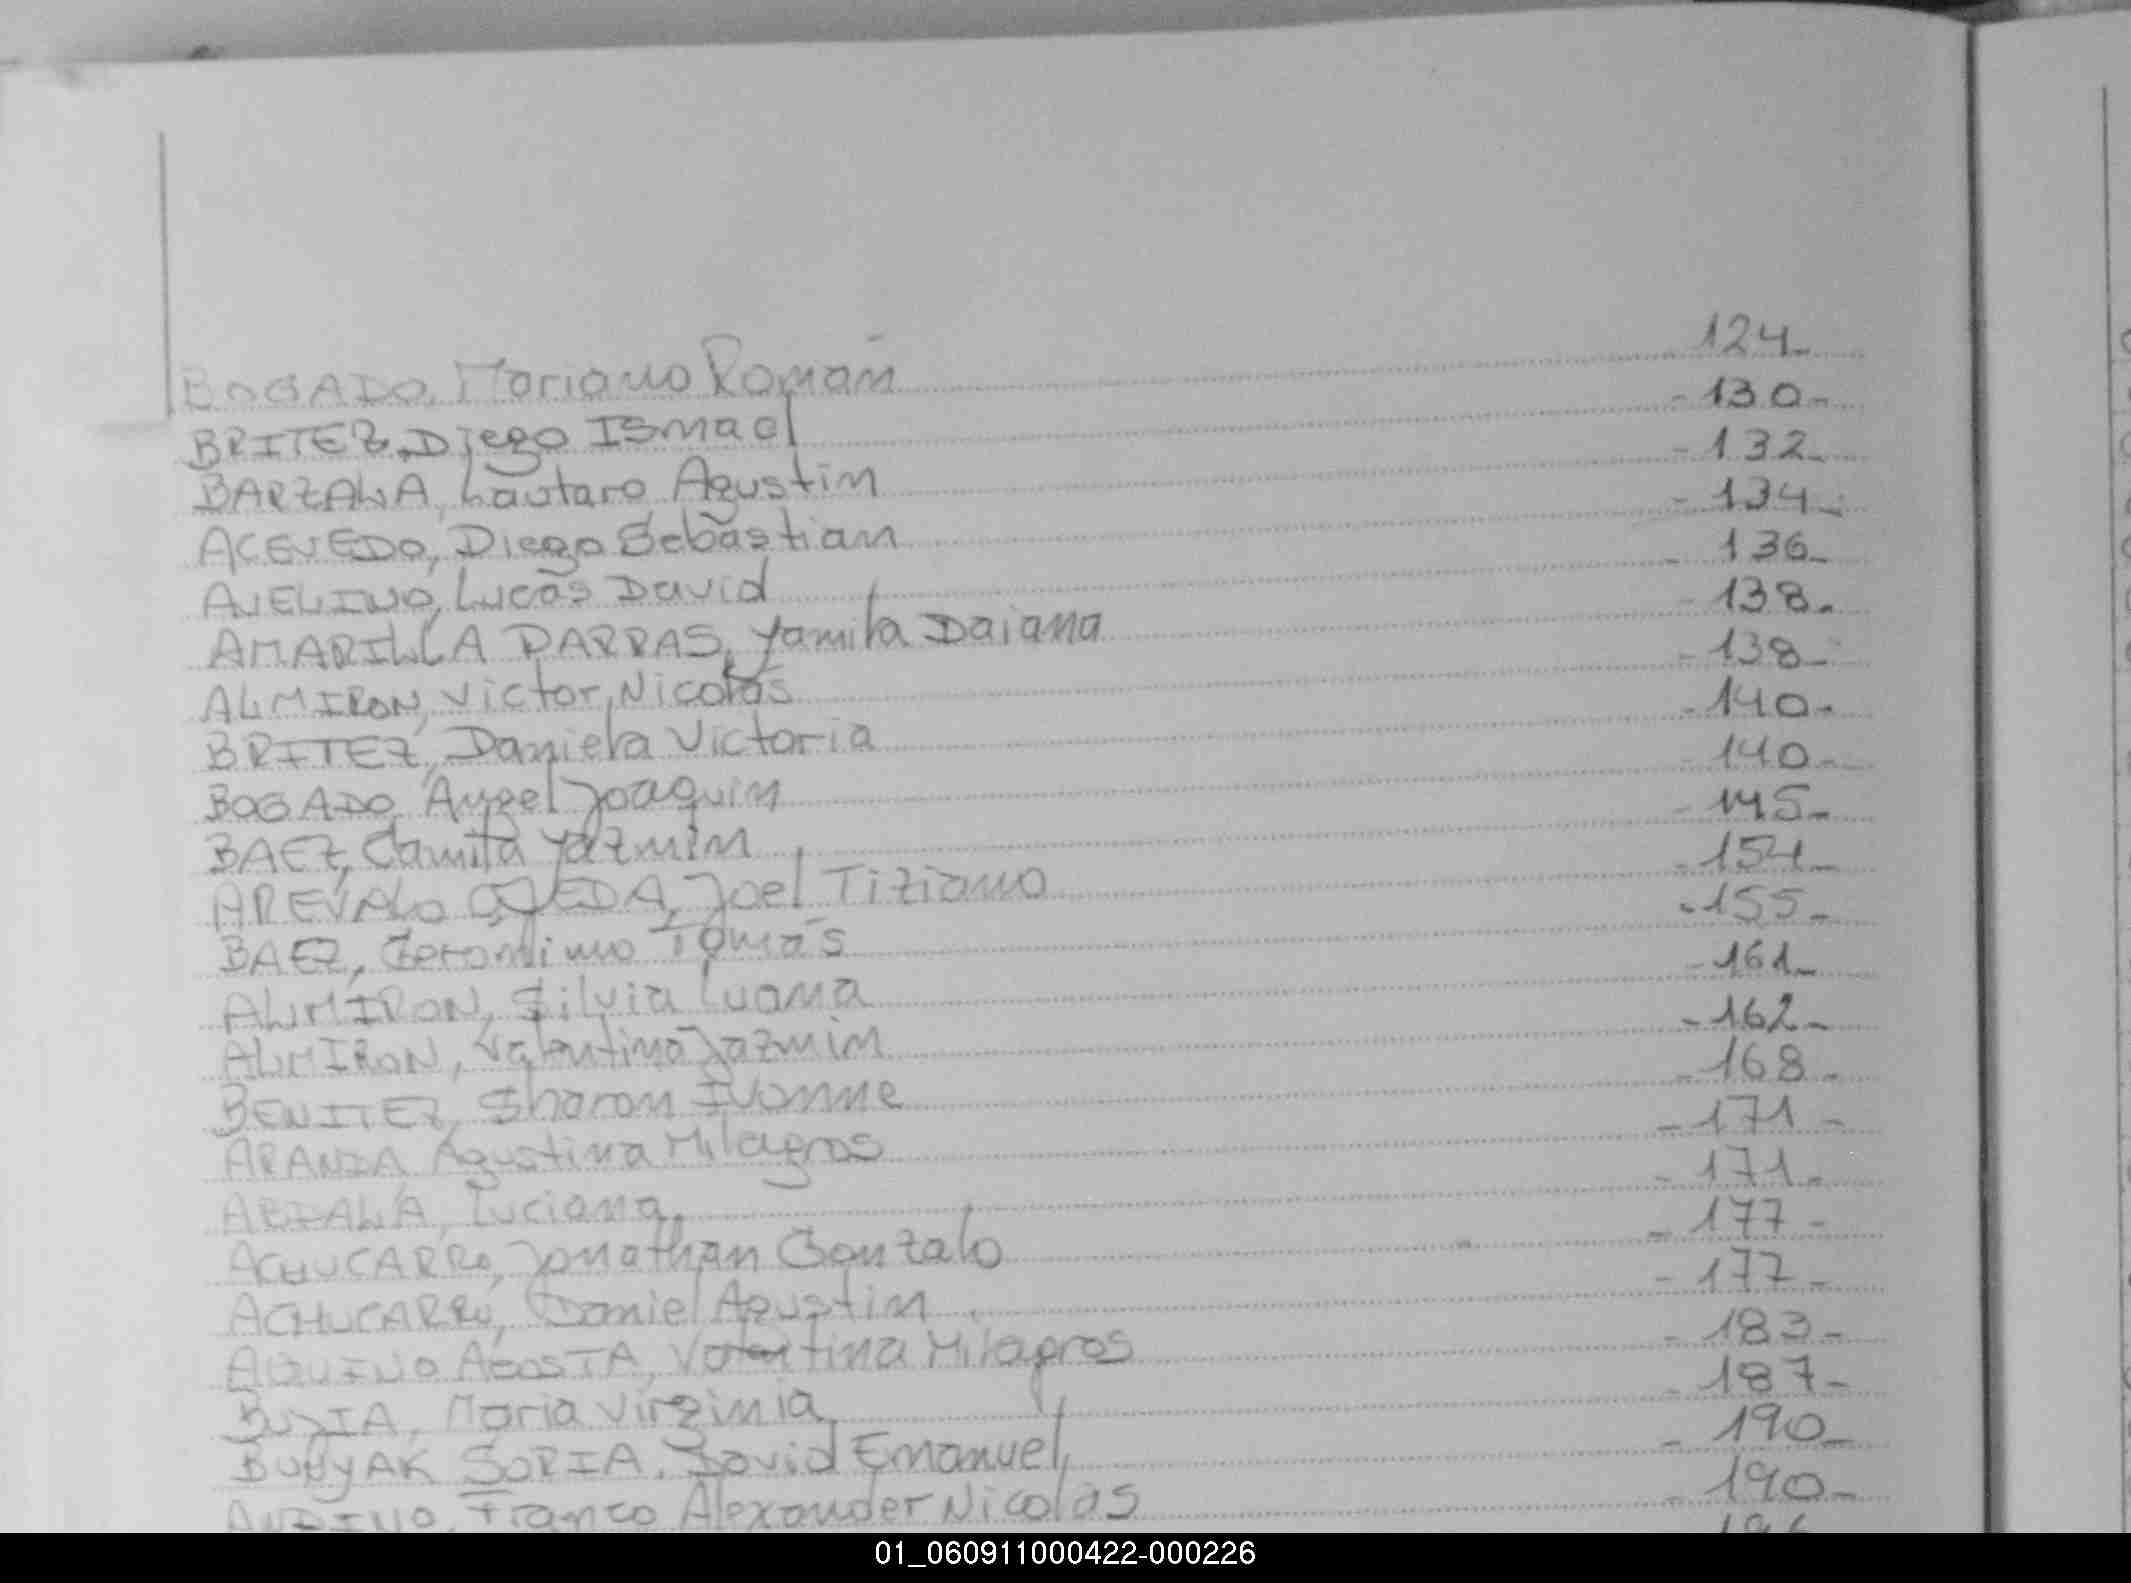 BOGADO, Mariano Román 124-
BRITEZ, Diego Ismael - 130-
BARZALA, Lautaro Agustin - 132-
ACEVEDO, Diego Sebastian - 134-
AVELINO, Lucas David - 136-
AMARILLA PARRAS, Yamila Daiana - 138-
ALMIRON, Victor Nicolás - 138-
BRITEZ, Daniela Victoria - 140-
BOGADO, Angel Joaquin - 140-
BAEZ, Camila Yazmin - 145-
AREVALO OJEDA, Joel Tiziano - 154-
BAEZ, Geronimo Tomás - 155-
ALMIRON, Silvia Luana - 161-
ALMIRON, Valentina Jazmin - 162-
BENITEZ, Sharon Ivonne - 168-
ARANDA Agustina Milagros - 171-
ABIALA, Luciana - 171-
ACHUCARRO, Jonathan Gonzalo - 177-
ACHUCARRO, Daniel Agustin - 177-
AQUINO ACOSTA, Valentina Milagros - 183-
Maria Virginia - 187-
SORIA, David Emanuel - 190-
ANDINO, Franco Alexander Nicolás - 190-
01_060911000422-000226